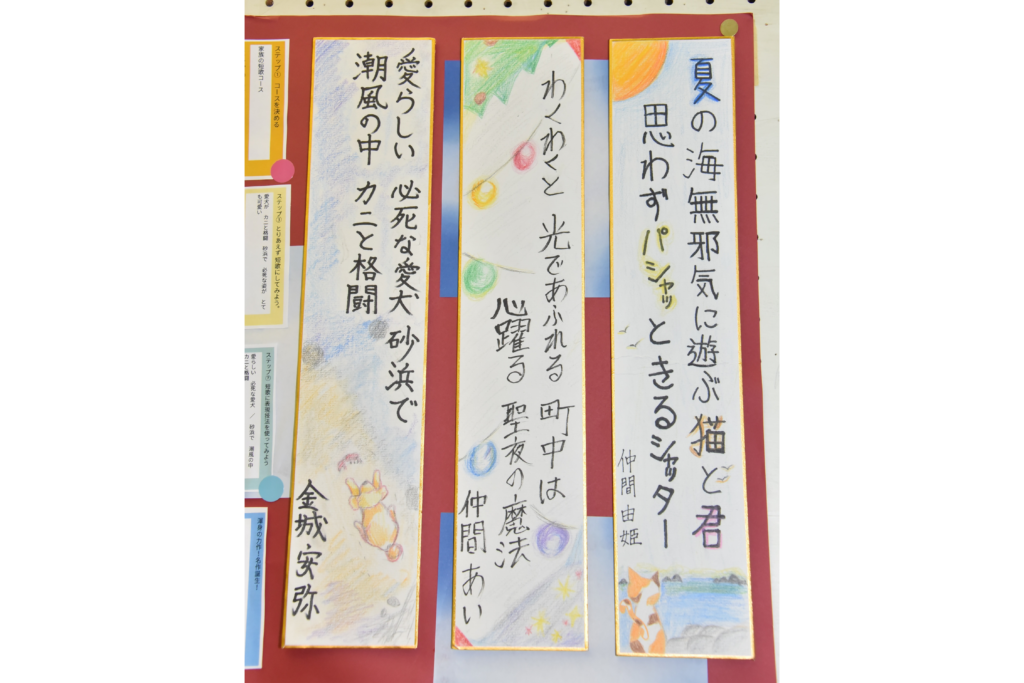 夏の海無邪気に遊ぶ猫と君
思わずパシャッときるシャッター
仲間由姫
わくわくと 光であふれる 町中は
心躍る 聖夜の魔法
仲間あい
愛らしい 必死な愛犬 砂浜で
潮風の中 カニと格闘
金城安弥
ステップ① コースを決める
家族の短歌コース
ステップ② とりあえず短歌にしてみよう。
愛犬が カニと格闘 砂浜で 必死な姿が とて
も可愛い
ステップ③ 短歌に表現技法を使ってみよう
愛らしい 必死な愛犬 / 砂浜で 潮風の中
カニと格闘
渾身の力作!名作誕生!